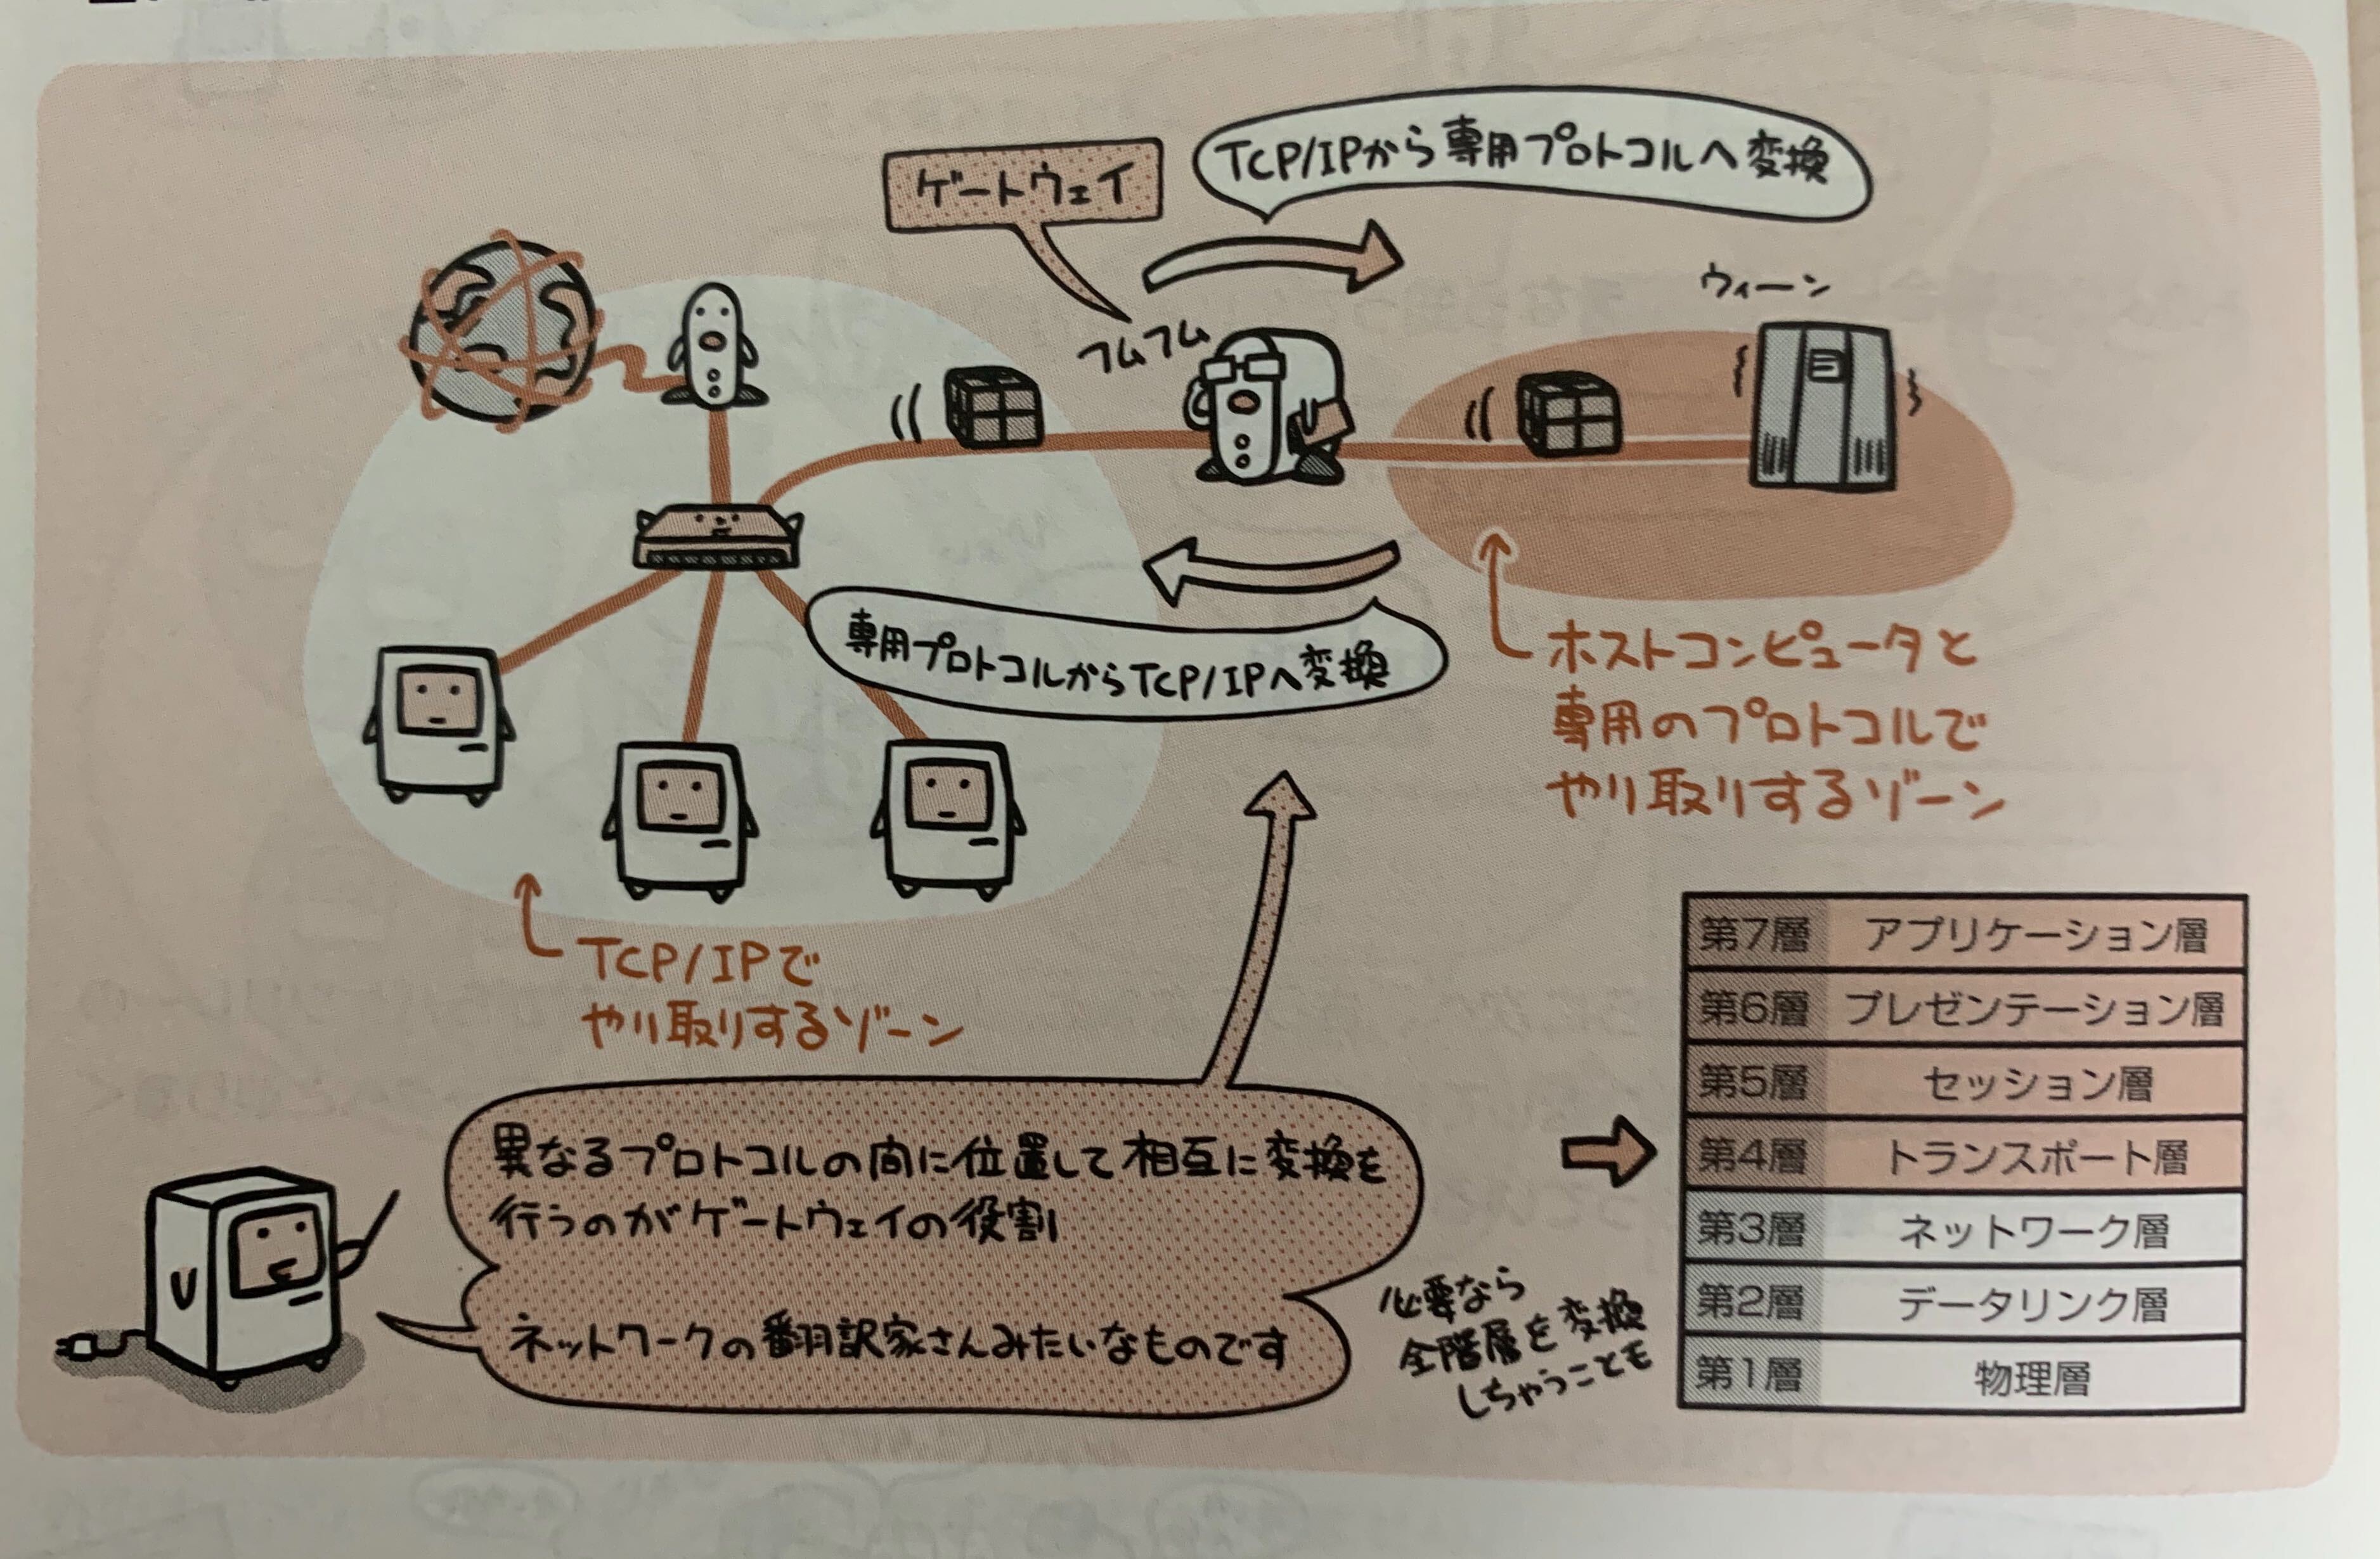 ゲートウェイ
TCP/IPから専用プロトコルへ変換
フムフム
ウィーン
専用プロトコルからTCP/IPへ変換
ホストコンピュータと
専用のプロトコルで
やり取りするゾーン
TCP/IPで
やり取りするゾーン
異なるプロトコルの間に位置して相互に変換を
行うのがゲートウェイの役割
ネットワークの翻訳家さんみたいなものです
必要なら
全階層を変換
しちゃうことも
第7層 アプリケーション層
第6層 プレゼンテーション層
第5層 セッション層
第4層 トランスポート層
第3層 ネットワーク層
第2層 データリンク層
第1層 物理層